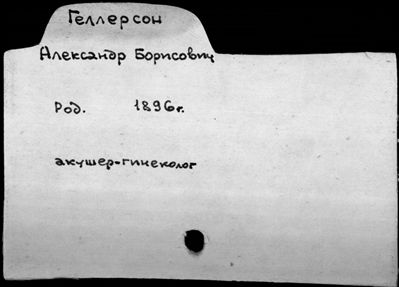 Геллерсон
Александр Борисович
Род. 1896г.
акушер-гинеколог